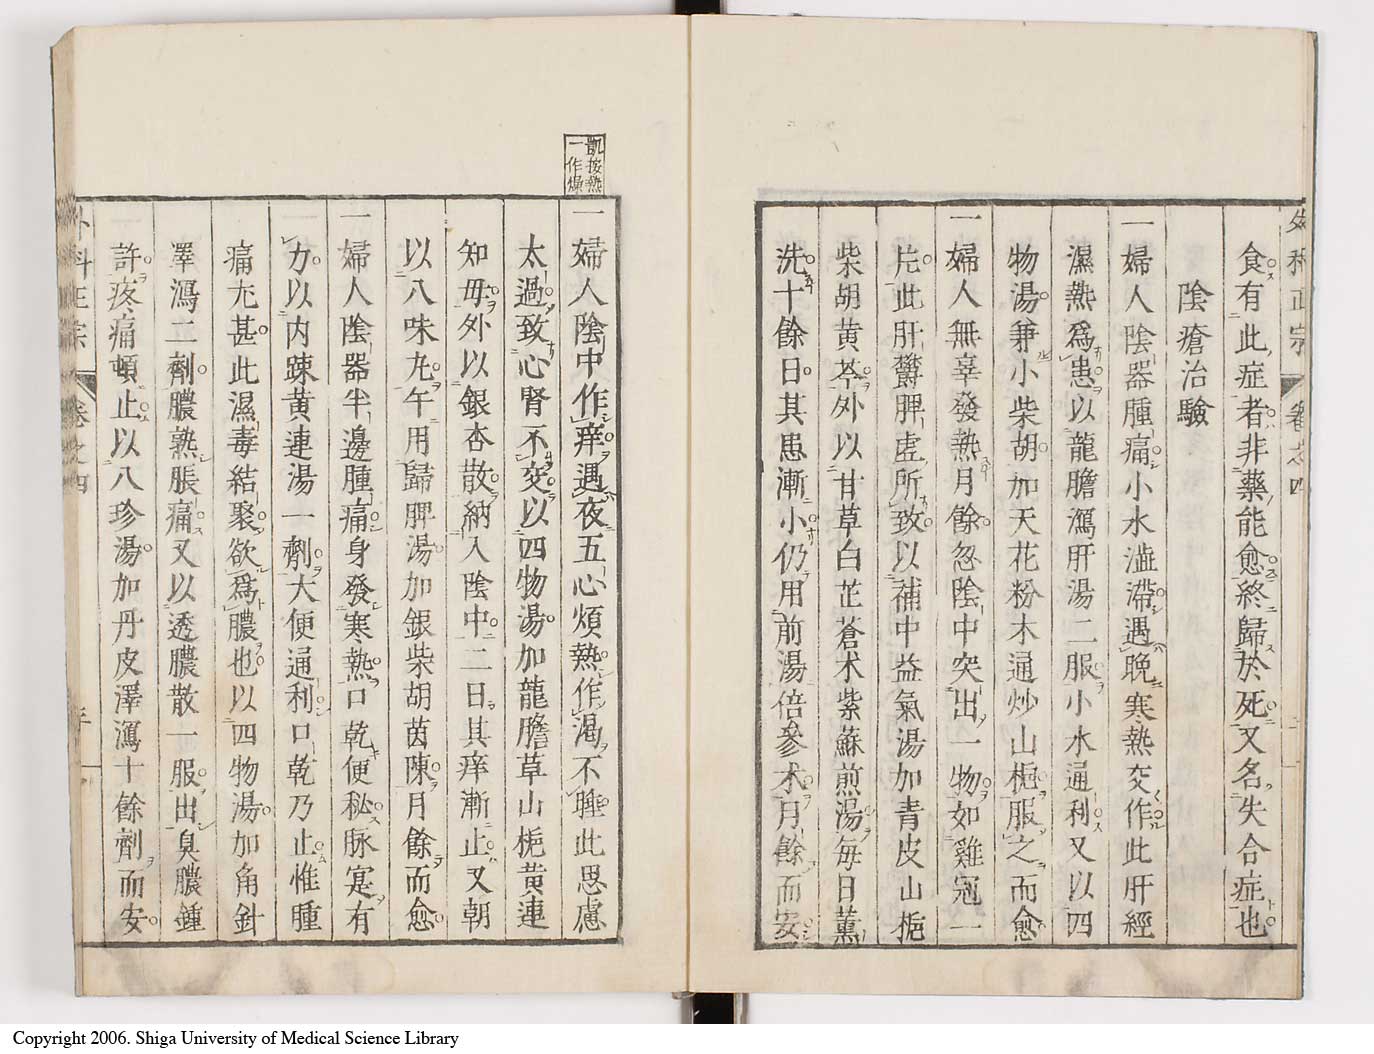 外科正宗 卷之四
食有此症者非藥能愈終歸於死又名失合症也
陰瘡治驗
一婦人陰器腫痛小水澁滯遇晚寒熱交作此肝經
濕熱爲患以龍膽瀉肝湯二服小水通利又以四
物湯兼小柴胡加天花粉木通炒山梔服之而愈
一婦人無辜發熱月餘忽陰中突出一物如雞冠一
片此肝欝脾虛所致以補中益氣湯加青皮山梔
柴胡黃芩外以甘草白芷蒼术紫蘇煎湯每日薰
洗十餘日其患漸小仍用前湯倍參术月餘而安
凱按熱
一作燥
一婦人陰中作痒遇夜五心煩熱作渴不睡此思慮
太過致心腎不交以四物湯加龍膽草山梔黃連
知毋外以銀杏散納入陰中二日其痒漸止又朝
以八味丸午用歸脾湯加銀柴胡茵陳月餘而愈
一婦人陰器半邊腫痛身發寒熱口乾便秘脉寔有
力以内踈黃連湯一劑大便通利口乾乃止惟腫
痛尤甚此濕毒結聚欲爲膿也以四物湯加角針
澤瀉二劑膿熟脹痛又以透膿散一服出臭膿鍾
許疼痛頓止以八珍湯加丹皮澤瀉十餘劑而安
外科正宗 卷之四
Copyright 2006. Shiga University of Medical Science Library